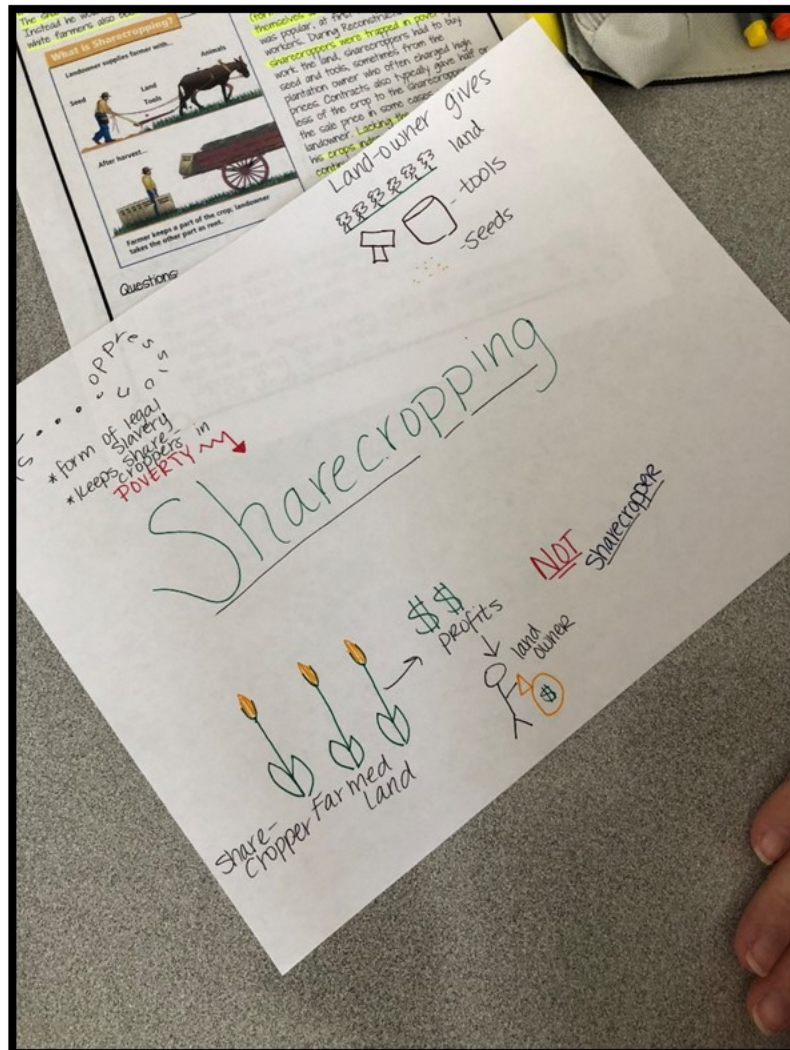 The
Instead he wo
white farmers also
What is Sharecropping?
Landowner supplies farmer with...
Animals
Land
Seed
Tools
After harvest...
Farmer keeps a part of the crop, landowner
takes the other part as rent.
Questions:
(for
themselves
was popular, at first
workers. During Reconstruc
sharecroppers were trapped in pover
work the land, sharecroppers had to buy
seed and tools, sometimes from the
plantation owner who often charged high
prices. Contracts also typically gave half or
less of the crop to the sharecropper
the sale price in some cases
landowner. Lacking
his crops
Land-owner gives
land
-tools
-seeds
oppress
* form of legal
slavery
* keeps share-
croppers in
POVERTY
Sharecropping
$$
profits
NOT
sharecropper
land
owner
$
share-
cropper
Farmed
land